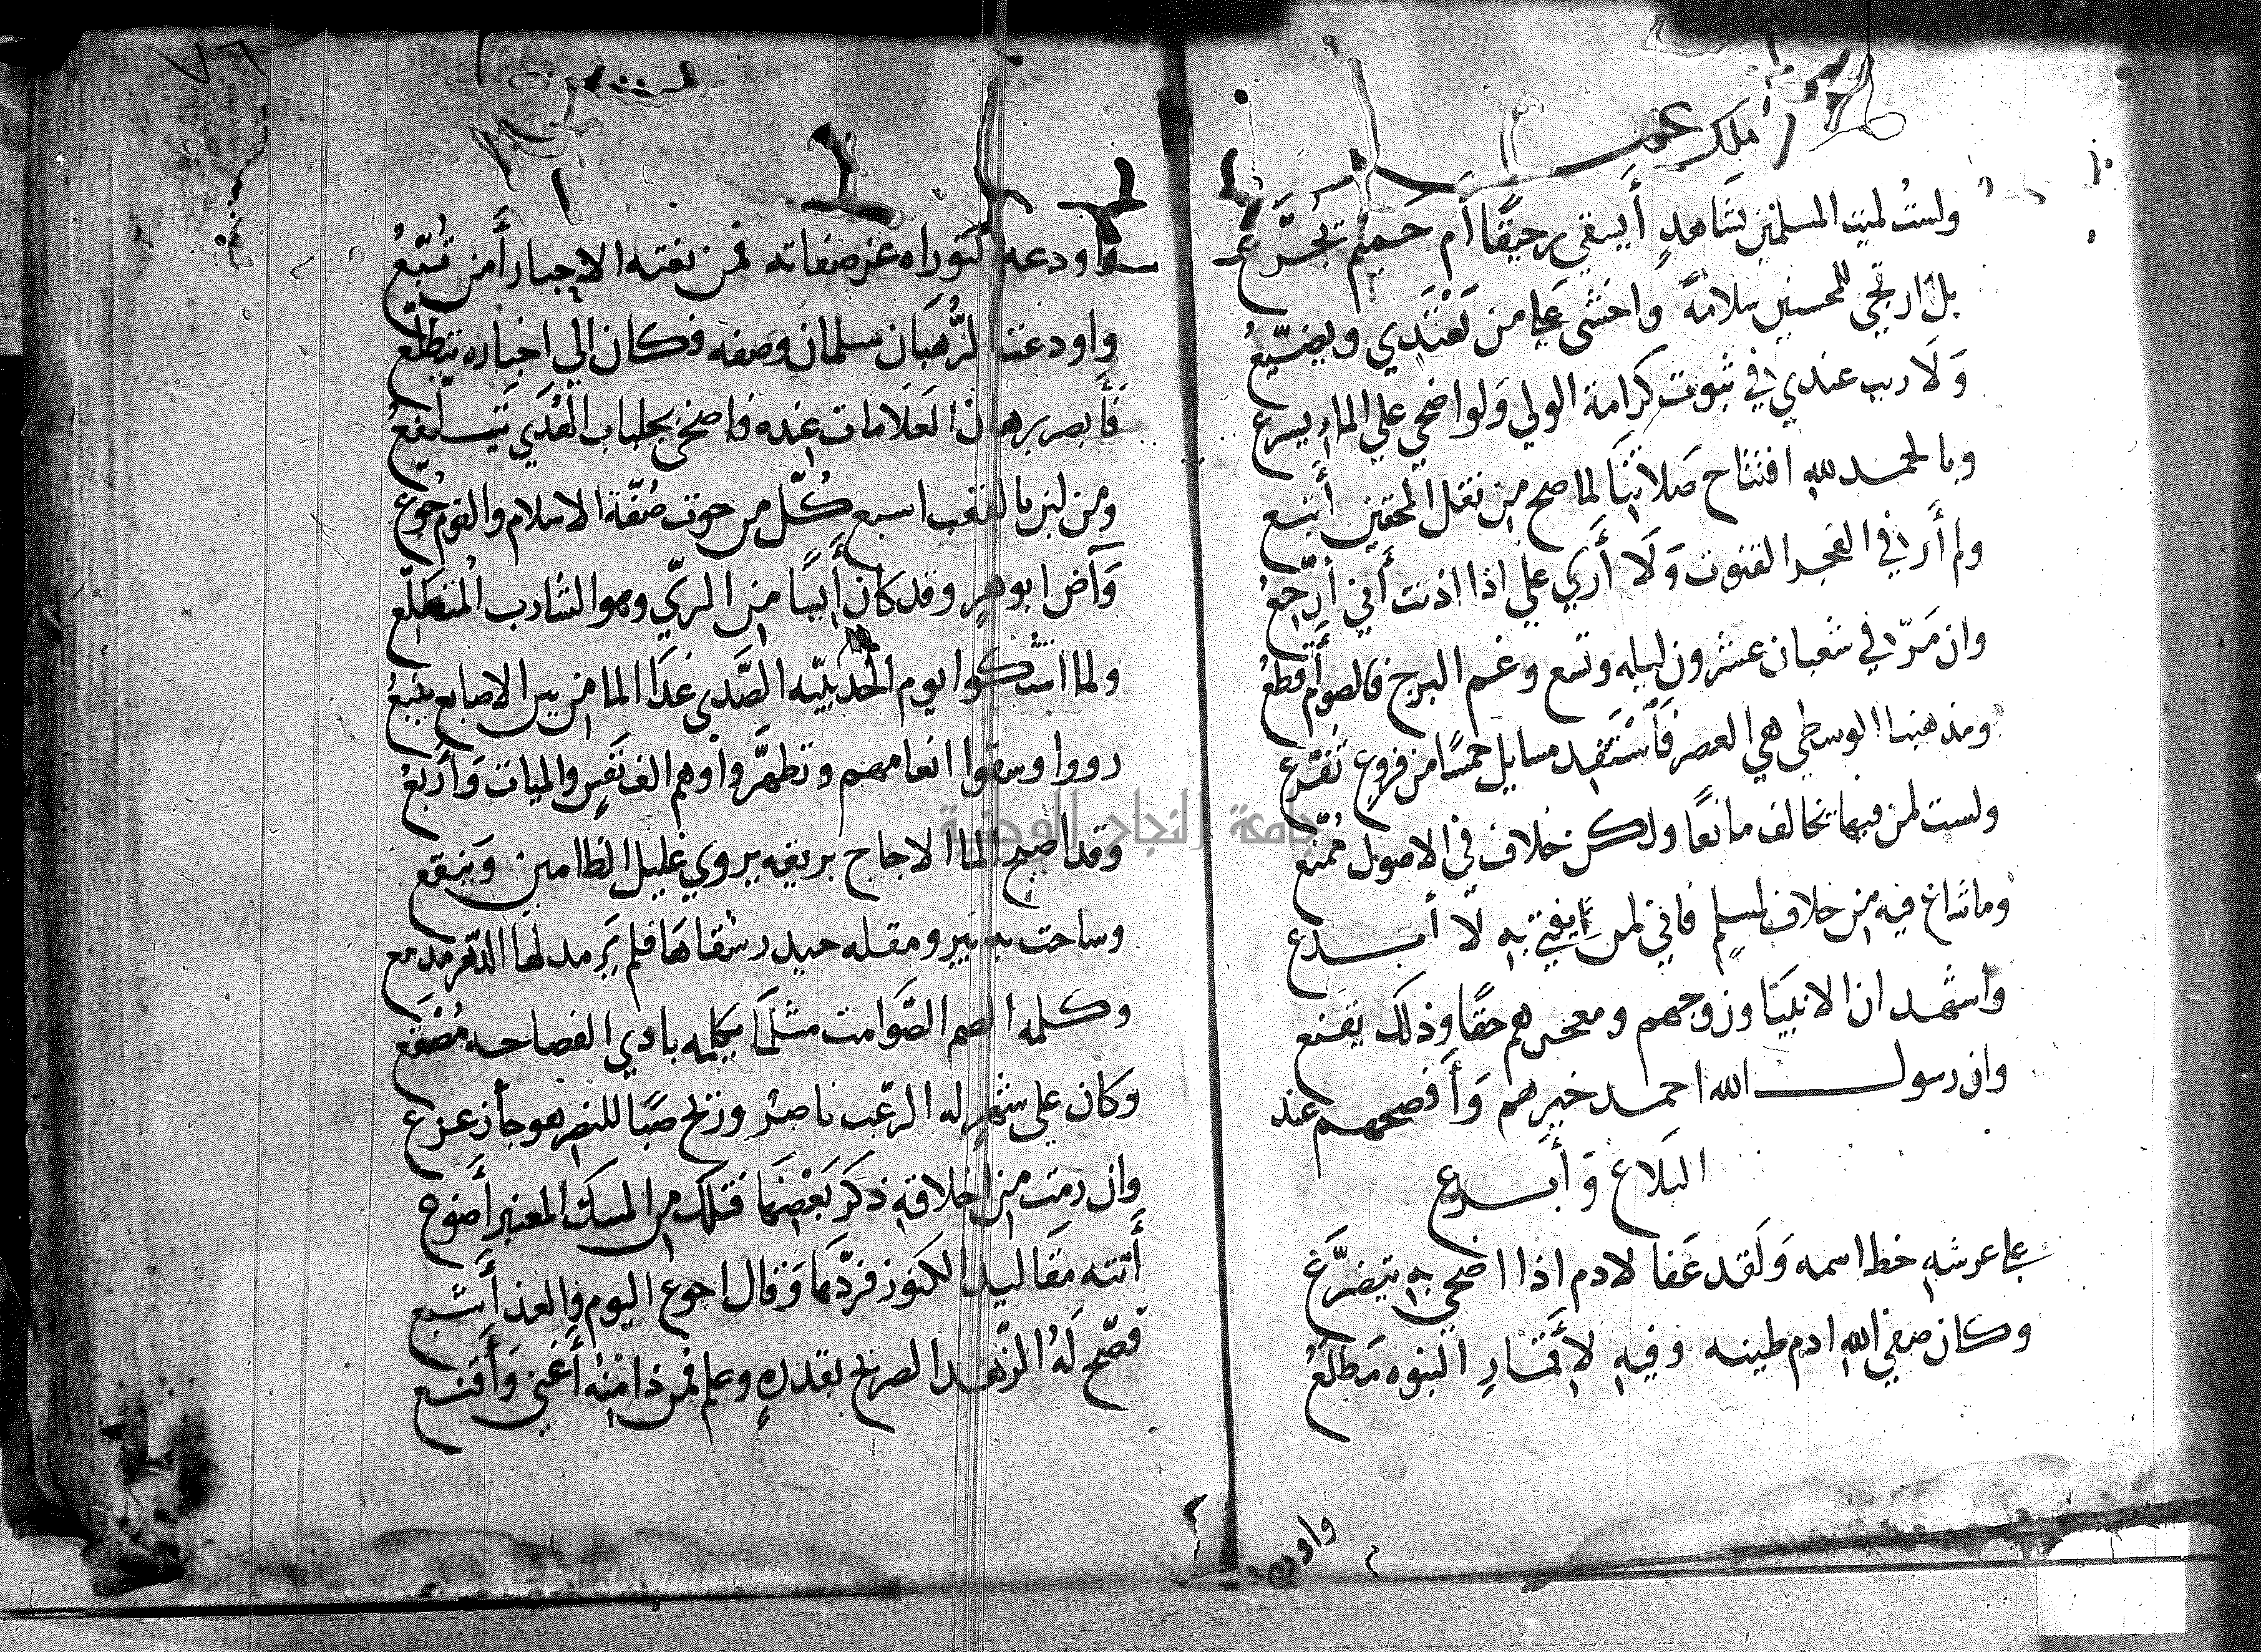 أملك عمر
ولستُ لميت المسلمين بشَاهدٍ أيسقي رحيقًا أم حميم تجرَّع
بل ارتجي للمحسنين سلامةً واخشى علي من تعْتَدِي ويضيّعُ
وَلَا ريب عندي في ثبوت كرامة الولي وَلو اضحي علي الماء يسرع
وبالحمد لله افتتاح صَلاتنا لما صح من نقل المحقين أتبع
ولم أَرَ في الفجر القنوت وَلَا أَرَي علي اذا اذنت أني أرجّعُ
وان مَرّ في شعبان عشرون ليله وتسع وغم البرج فالصوم أقطعُ
ومذهبنا الوسطي هي العصر فَاسْتَفِد مسايل خمسًا من فروع تفرّع
ولست لمن فيها تخالف مانعًا ولكن خلاف في الاصول ممنّع
وما شاع فيه من خلاف لمسلمٍ فاني لمن يفتي به لَا أبدع
وأشهد ان الانبيَا وزوجهم ومعجزهم حقًا وذلك يقنع
وان رسول الله احمد خيرهم وَأَفصحهم عند
البَلَاغ وَأَبدع
علي عرشه خط اسمه وَلَقد عَفا لادم اذا اضحي به يتضرَّعُ
وكان صفي الله ادم طينه وفيه لأَقمَارِ النبوه مَطلَعُ
واودعه
واودعه التوراه عن صفاته فمن نعته الاحبار أَمن تُبّعُ
واودعت الرُّهبَان سلمان وصفه فكان الي اخباره يتطلّع
فَأَبصر برهان العَلَامات عنده فاضحى بجلباب الهُدَي يتلفعُ
ومن لبن بالقعب اسبع كُلّ من حوت صُفّة الاسلام والقوم جُوّع
وَآض ابو هر وقد كان أَيسًا من الريّ وهو الشارب المُتضلّع
ولما اشتكوا يوم الحُديبيّه الصَّدي غدَا الما من بين الاصابع ينبعُ
رووا وسقوا انعامهم وتطهَّروا وهم الف نَفسٍ والميات وَأَربعُ
وقد اصبح الما الاجاج بريقه يروي غليل الظامين وَينقع
وساحت به بير ومقله حيدر سقاهَا فلم يَرمد لها الدّهر مدمع
وكلمه الصم الصَّوامت مثلمَا يكلمه بادي الفصاحه مُصْقَع
وكان علي شهرٍ له الرعّب ناصرٌ وريح صبًا للنصر هوجاء زعزع
وان رمت من اخلاقه ذكر بَعْضِهَا فتلك من المسك المعنبر أَضوع
أَتته مقَاليد الكنوز فردّهَا وَقال اجوع اليوم والغد أَشبع
فصّح لَهُ الزّهد الصريح بقدرهِ وعلم فمن ذا مِنْهُ أَغني وَأَقنع